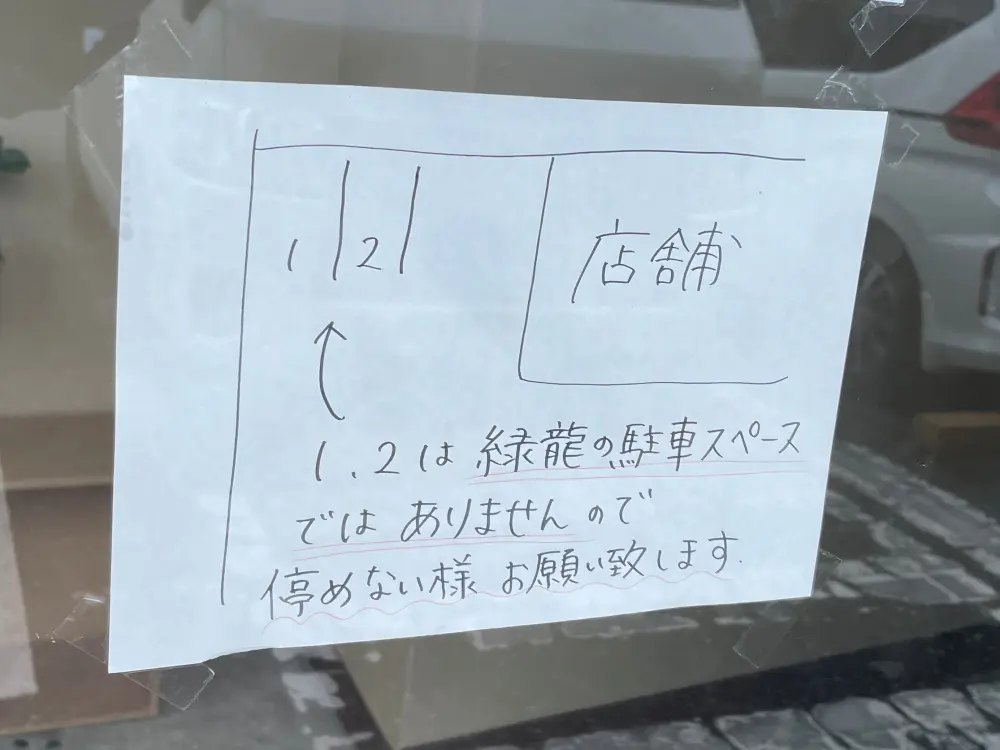 1 2
店舗
1.2は 緑龍の駐車スペース
ではありませんので
停めない様 お願い致します.